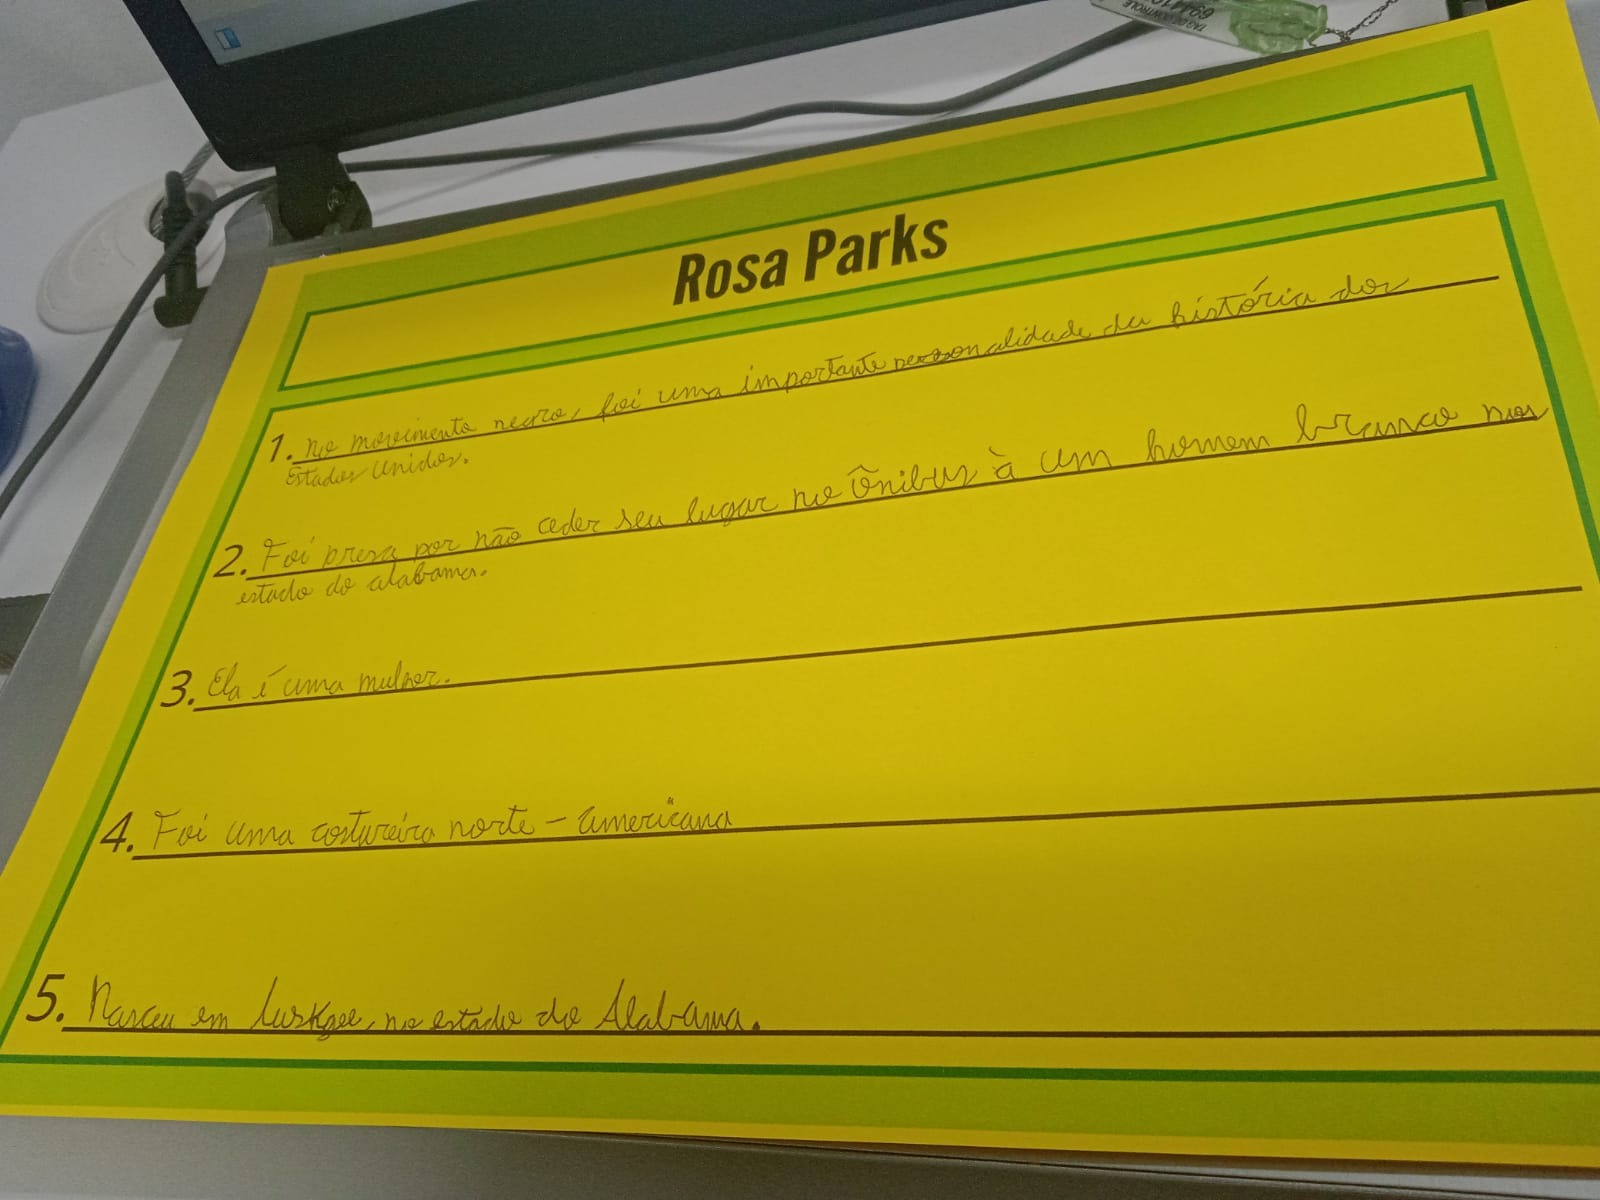 Rosa Parks
1. No movimento negro, foi uma importante personalidade da história dos
Estados Unidos.
2. Foi presa por não ceder seu lugar no ônibus à um homem branco no
estado do alabama.
3. Ela é uma mulher.
4. Foi uma costureira norte-americana
5. Nasceu em Tuskgee, no estado do Alabama.